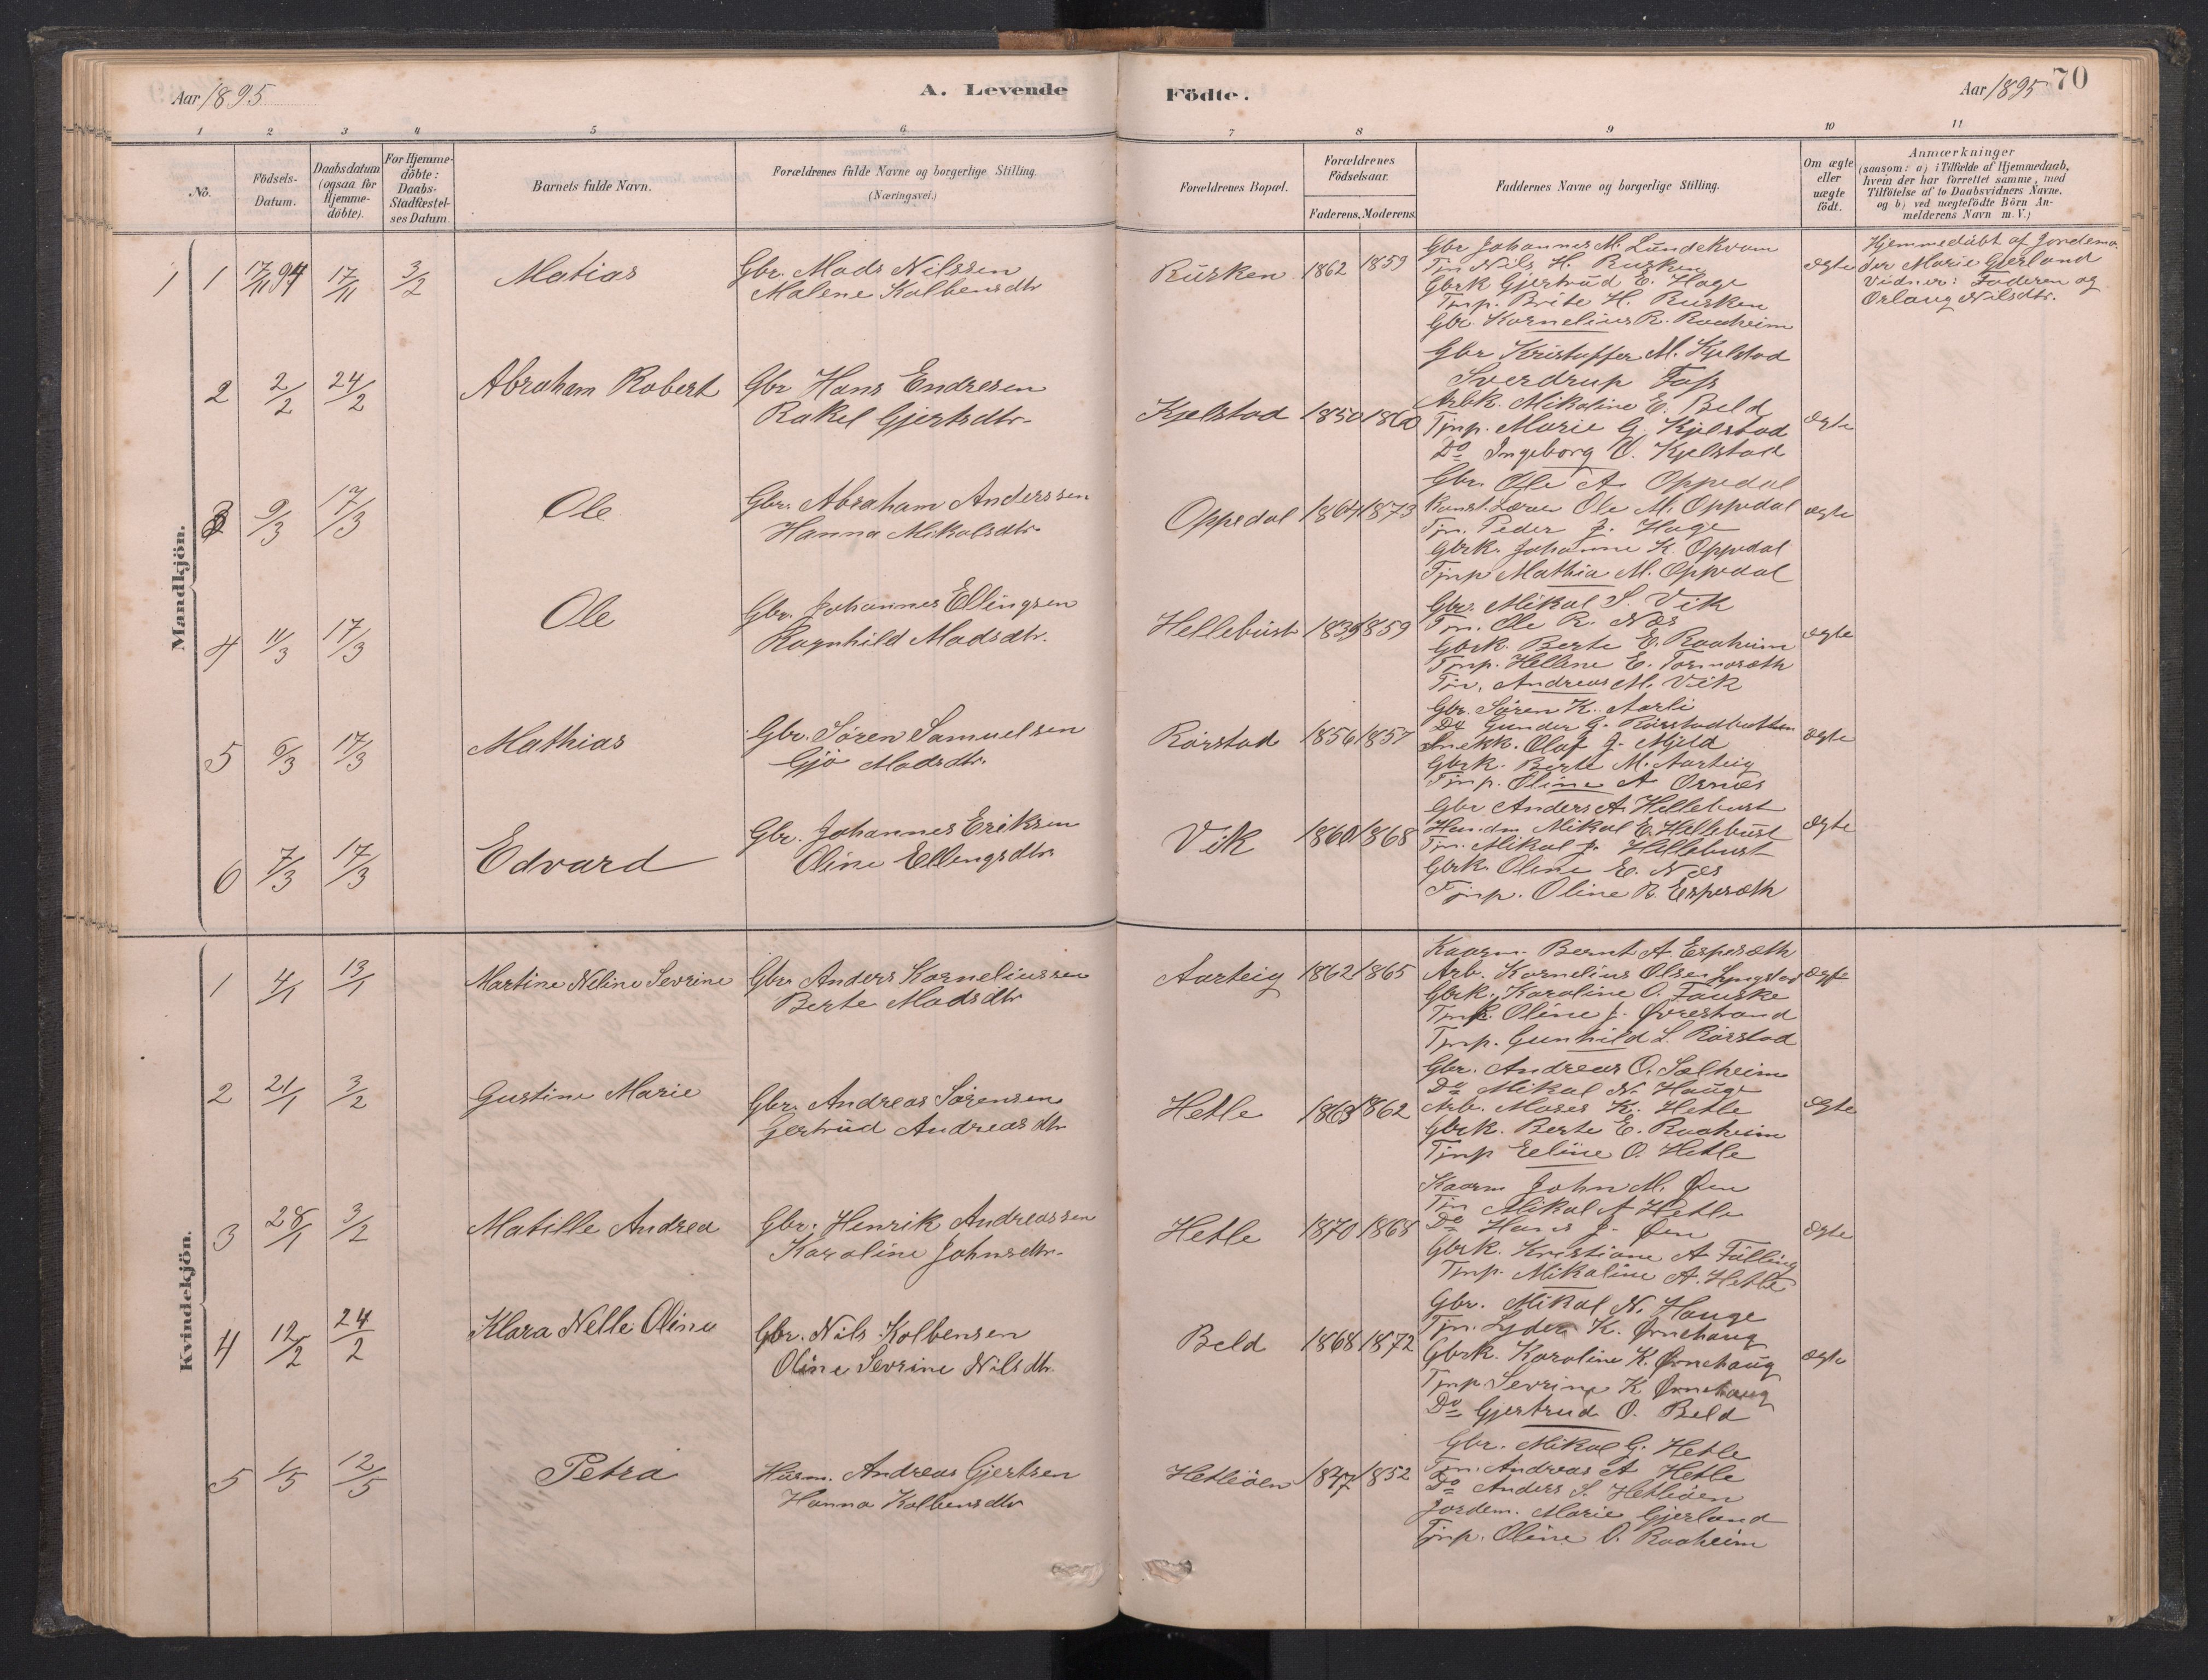 Aar 1895
A. Levende
Födte.
Aar 1895
70
1 2 3 4 5 6 7 8 9 10 11
No.
Födsels-Datum.
Daabsdatum (ogsaa for Hjemme-döbte).
For Hjemme-döbte: Daabs-Stadfæstel-ses Datum.
Barnets fulde Navn.
Forældrenes fulde Navne og borgerlige Stilling.
(Næringsvei.)
Forældrenes Bopæl.
Forældrenes Födselsaar.
Faderens. Moderens.
Faddernes Navne og borgerlige Stilling.
Om ægte eller uægte födt.
Anmærkninger
(saasom: a) i Tilfælde af Hjemmedaab,
hvem der har forrettet samme, med
Tilföielse af to Daabsvidners Navne.
og b) ved uægtefödte Börn An-
melderens Navn m. V.)
Mandkjön.
1 1 17/11 94 17/11 3/2 Matias
Gbr. Mads Nilssen
Malene Kolbensdtr
Rusken 1862 1859
Gbr Johannes M. Lundekvam
Tjn Nils H. Rusken
Gbrk Gjertrud E. Hage
Tjnp. Brite H. Rusken
Gbr. Kornelius R. Raaheim
ægte
Hjemmedøbt af Jordemo-
der Marie Gjerland
Vidner: Faderen og
Orlaug Nilsdtr.
2 2/2 24/2 Abraham Robert
Gbr Hans Endresen
Rakel Gjertsdtr.
Kjelstad 1850 1860
Gbr Kristoffer M. Kjelstad
Sverdrup Foss
Arbk. Mikaline E. Beld
Tjnp. Marie G. Kjelstad
Do Ingeborg O. Kjelstad
ægte
3 9/3 17/3 Ole
Gbr. Abraham Anderssen
Hanna Mikalsdtr.
Oppedal 1864 1873
Gbr. Ole A Oppedal
Kunst. Lærer Ole M. Oppedal
Tjn. Peder J. Hage
Gbrk. Johanne K. Oppedal
Tjnp Mathia M. Oppedal
ægte
4 11/3 17/3 Ole
Gbr. Johannes Ellingsen
Ragnhild Madsdtr.
Hellebust 1839 1859
Gbr. Mikal S. Vik
Tjn. Ole R. Næs
Gbrk. Berte E. Raaheim
Tjnp. Hellene E. Tormoræth
Tjn. Andreas M. Vik
ægte
5 6/3 17/3 Mathias
Gbr. Søren Samuelsen
Gjø Madsdtr.
Rørstad 1856 1857
Gbr. Søren K. Aarli
Do Gunder G. Rørstadbotten
Snekk. Olaf J. Mjeld
Gbrk. Berte M. Aarteig
Tjnp. Oline A Ornæs
ægte
6 7/3 17/3 Edvard
Gbr. Johannes Eriksen
Oline Ellingsdtr
Vik 1860 1868
Gbr Anders A. Hellebust
Handm Mikal E. Hellebust
Tjn. Mikal J. Hellebust
Gbrk. Oline E. Næs
Tjnp. Oline R. Esperæth
ægte
Kvindekjön.
1 4/1 13/1 Martine Neline Sevrine
Gbr Anders Korneliussen
Berte Madsdtr
Aarteig 1862 1865
Kaarm. Bernt A. Esperæth
Arb. Kornelius Olsen Lyngstad
Gbrk. Karoline O. Fauske
Tjnp. Oline J. Øvrestrand
Tjnp. Gunhild L. Rørstad
ægte
2 21/1 3/2 Gustine Marie
Gbr. Andreas Sørensen
Gertrud Andreasdtr
Hetle 1863 1862
Gbr. Andreas O. Solheim
Do Mikal N. Hauge
Arb. Moses K. Hetle
Gbrk. Berte E. Raaheim
Tjnp Eeline O. Hetle
ægte
3 28/1 3/2 Matille Andrea
Gbr. Henrik Andreassen
Karoline Johnsdtr.
Hetle 1870 1868
Kaarm John M. Øen
Tjn Mikal A Hetle
Do Hans J. Øen
Gbrk. Kristiane A Følling
Tjnp. Mikaline A. Hetle
ægte
4 12/2 24/2 Klara Nelle Oline
Gbr. Nils Kolbensen
Oline Sevrine Nilsdtr.
Beld 1868 1872
Gbr. Mikal N. Hauge
Tjn. Lyder K. Ørnehaug
Gbrk. Karoline K. Ørnehaug
Tjnp Sevrine K Ørnehaug
Do Gjertrud O. Beld
ægte
5 1/5 12/5 Petra
Husm. Andreas Gjertsen
Hanna Kolbensdtr
Hetleøen 1847 1852
Gbr. Mikal G. Hetle
Tjn. Andreas A Hetle
Do Anders S. Hetleøen
Jordem. Marie Gjerland
Tjnp. Oline O. Raaheim